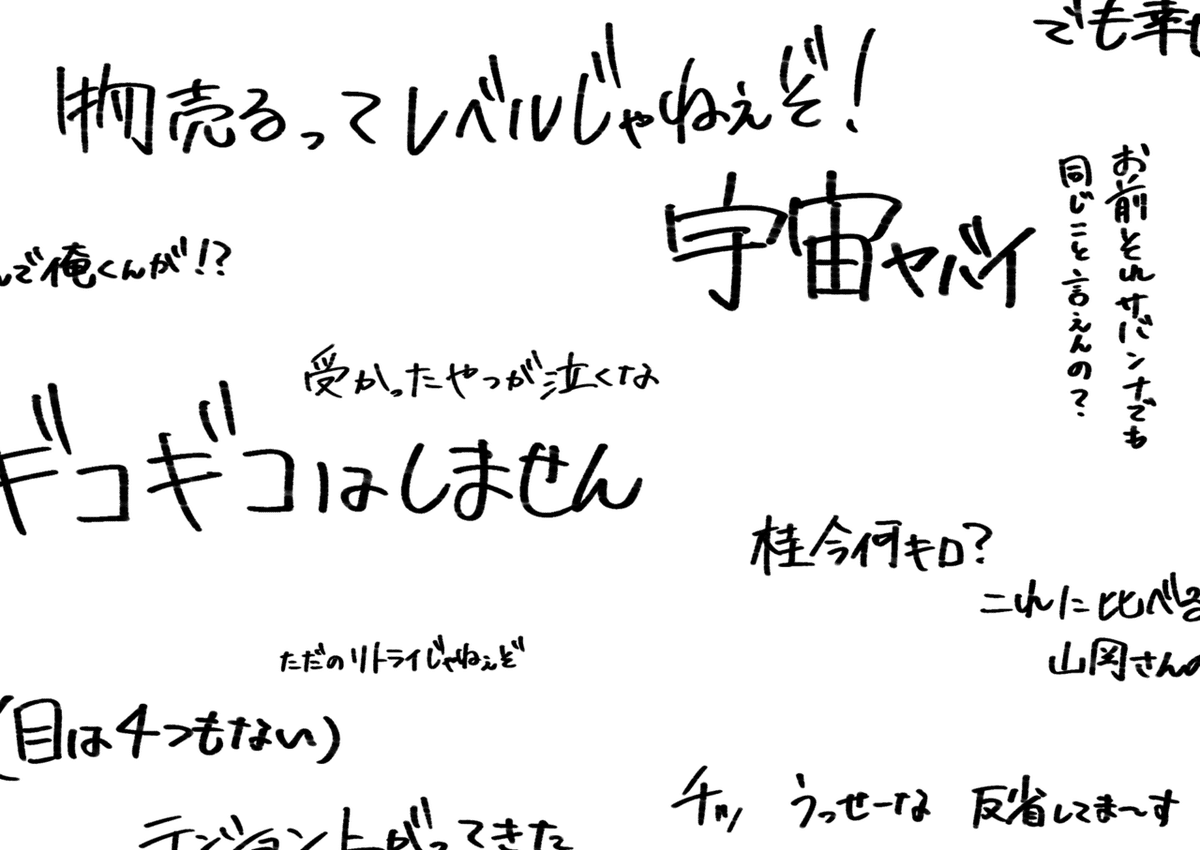 でも幸せ
物売るってレベルじゃねぇぞ!
お前それサバンナでも
同じこと言えんの?
宇宙ヤバイ
んで俺くんが!?
受かったやつが泣くな
ギコギコはしません
桂今何キロ?
これに比べる
山岡さんの
ただのリトライじゃねぇぞ
(目は4つもない)
チッ うっせーな 反省してま〜す
テンション上がってきた